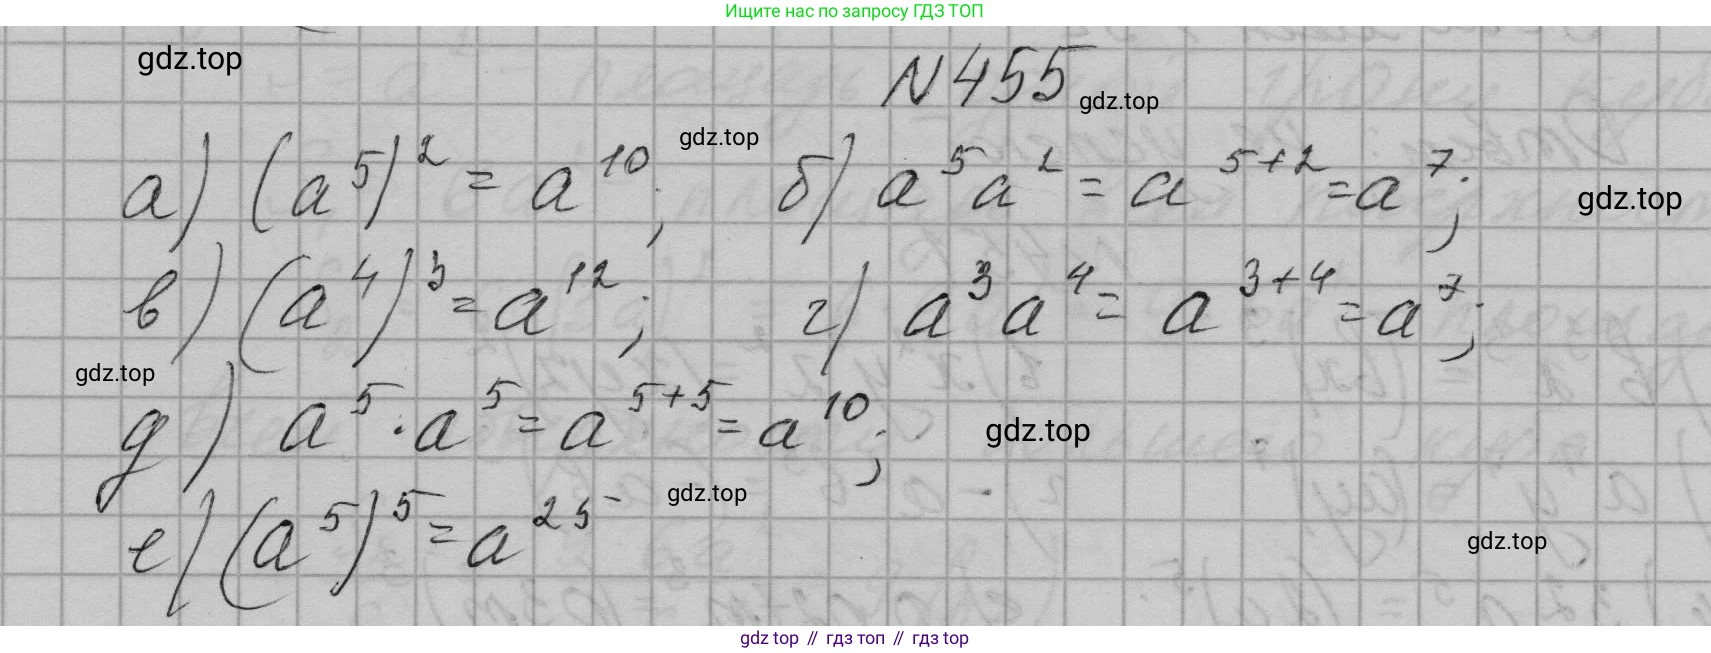 Ищите нас по запросу ГДЗ ТОП
gdz.top
N 455
gdz.top
gdz.top
а) (a⁵)² = a¹⁰; б) a⁵a² = a⁵⁺² = a⁷;
gdz.top
в) (a⁴)³ = a¹²; г) a³a⁴ = a³⁺⁴ = a⁷;
gdz.top
д) a⁵ · a⁵ = a⁵⁺⁵ = a¹⁰;
gdz.top
gdz.top
е) (a⁵)⁵ = a²⁵
gdz.top
gdz top // гдз топ // gdz top